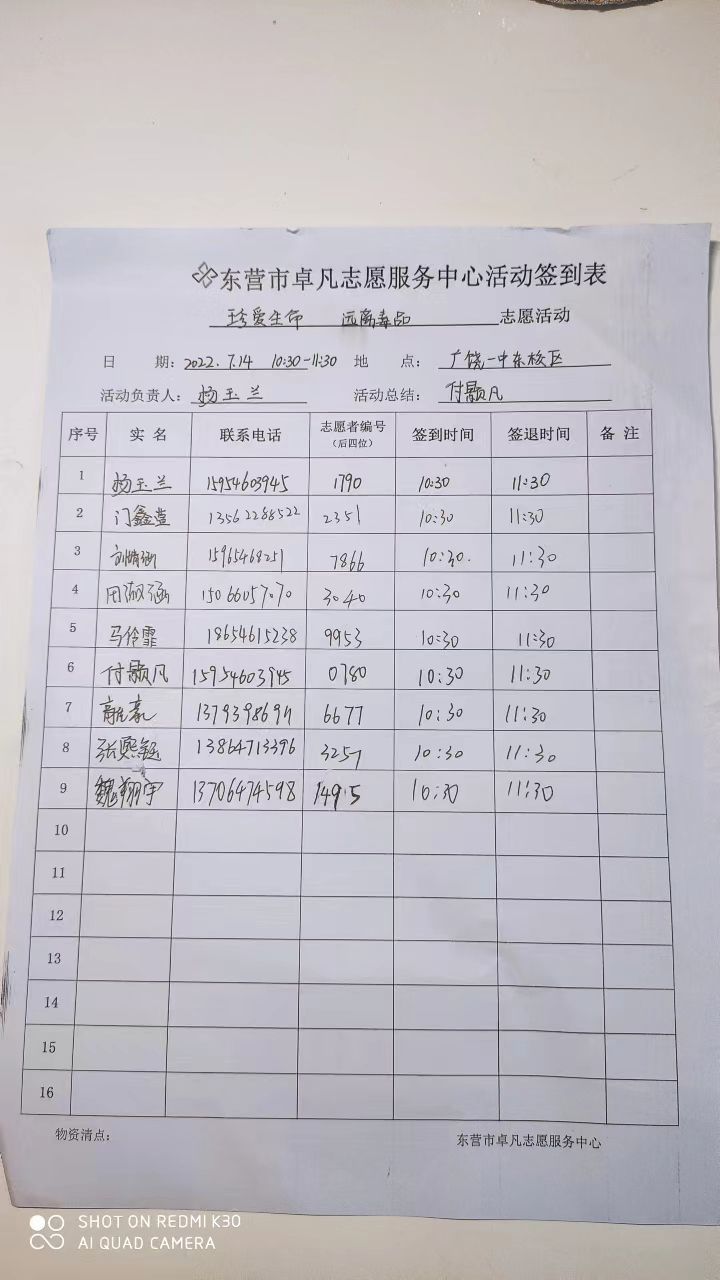 东营市卓凡志愿服务中心活动签到表
珍爱生命 远离毒品 志愿活动
日 期: 2022.7.14 10:30-11:30 地 点: 广饶一中东校区
活动负责人: 杨玉兰 活动总结: 付颢凡
序号 实 名 联系电话 志愿者编号 (后四位) 签到时间 签退时间 备 注
1 杨玉兰 15954603945 1790 10:30 11:30
2 门鑫萱 13562288522 2351 10:30 11:30
3 15965468251 7866 10:30. 11:30
4 田淑涵 15066057070 3040 10:30 11:30
5 马伶霏 18654615238 9953 10:30 11:30
6 付颢凡 15954603945 0780 10:30 11:30
7 6677 10:30 11:30
8 13864713396 3257 10:30 11:30
9 魏翔宇 13706474598 1495 10:30 11:30
10
11
12
13
14
15
16
物资清点: 东营市卓凡志愿服务中心
SHOT ON REDMI K30
AI QUAD CAMERA